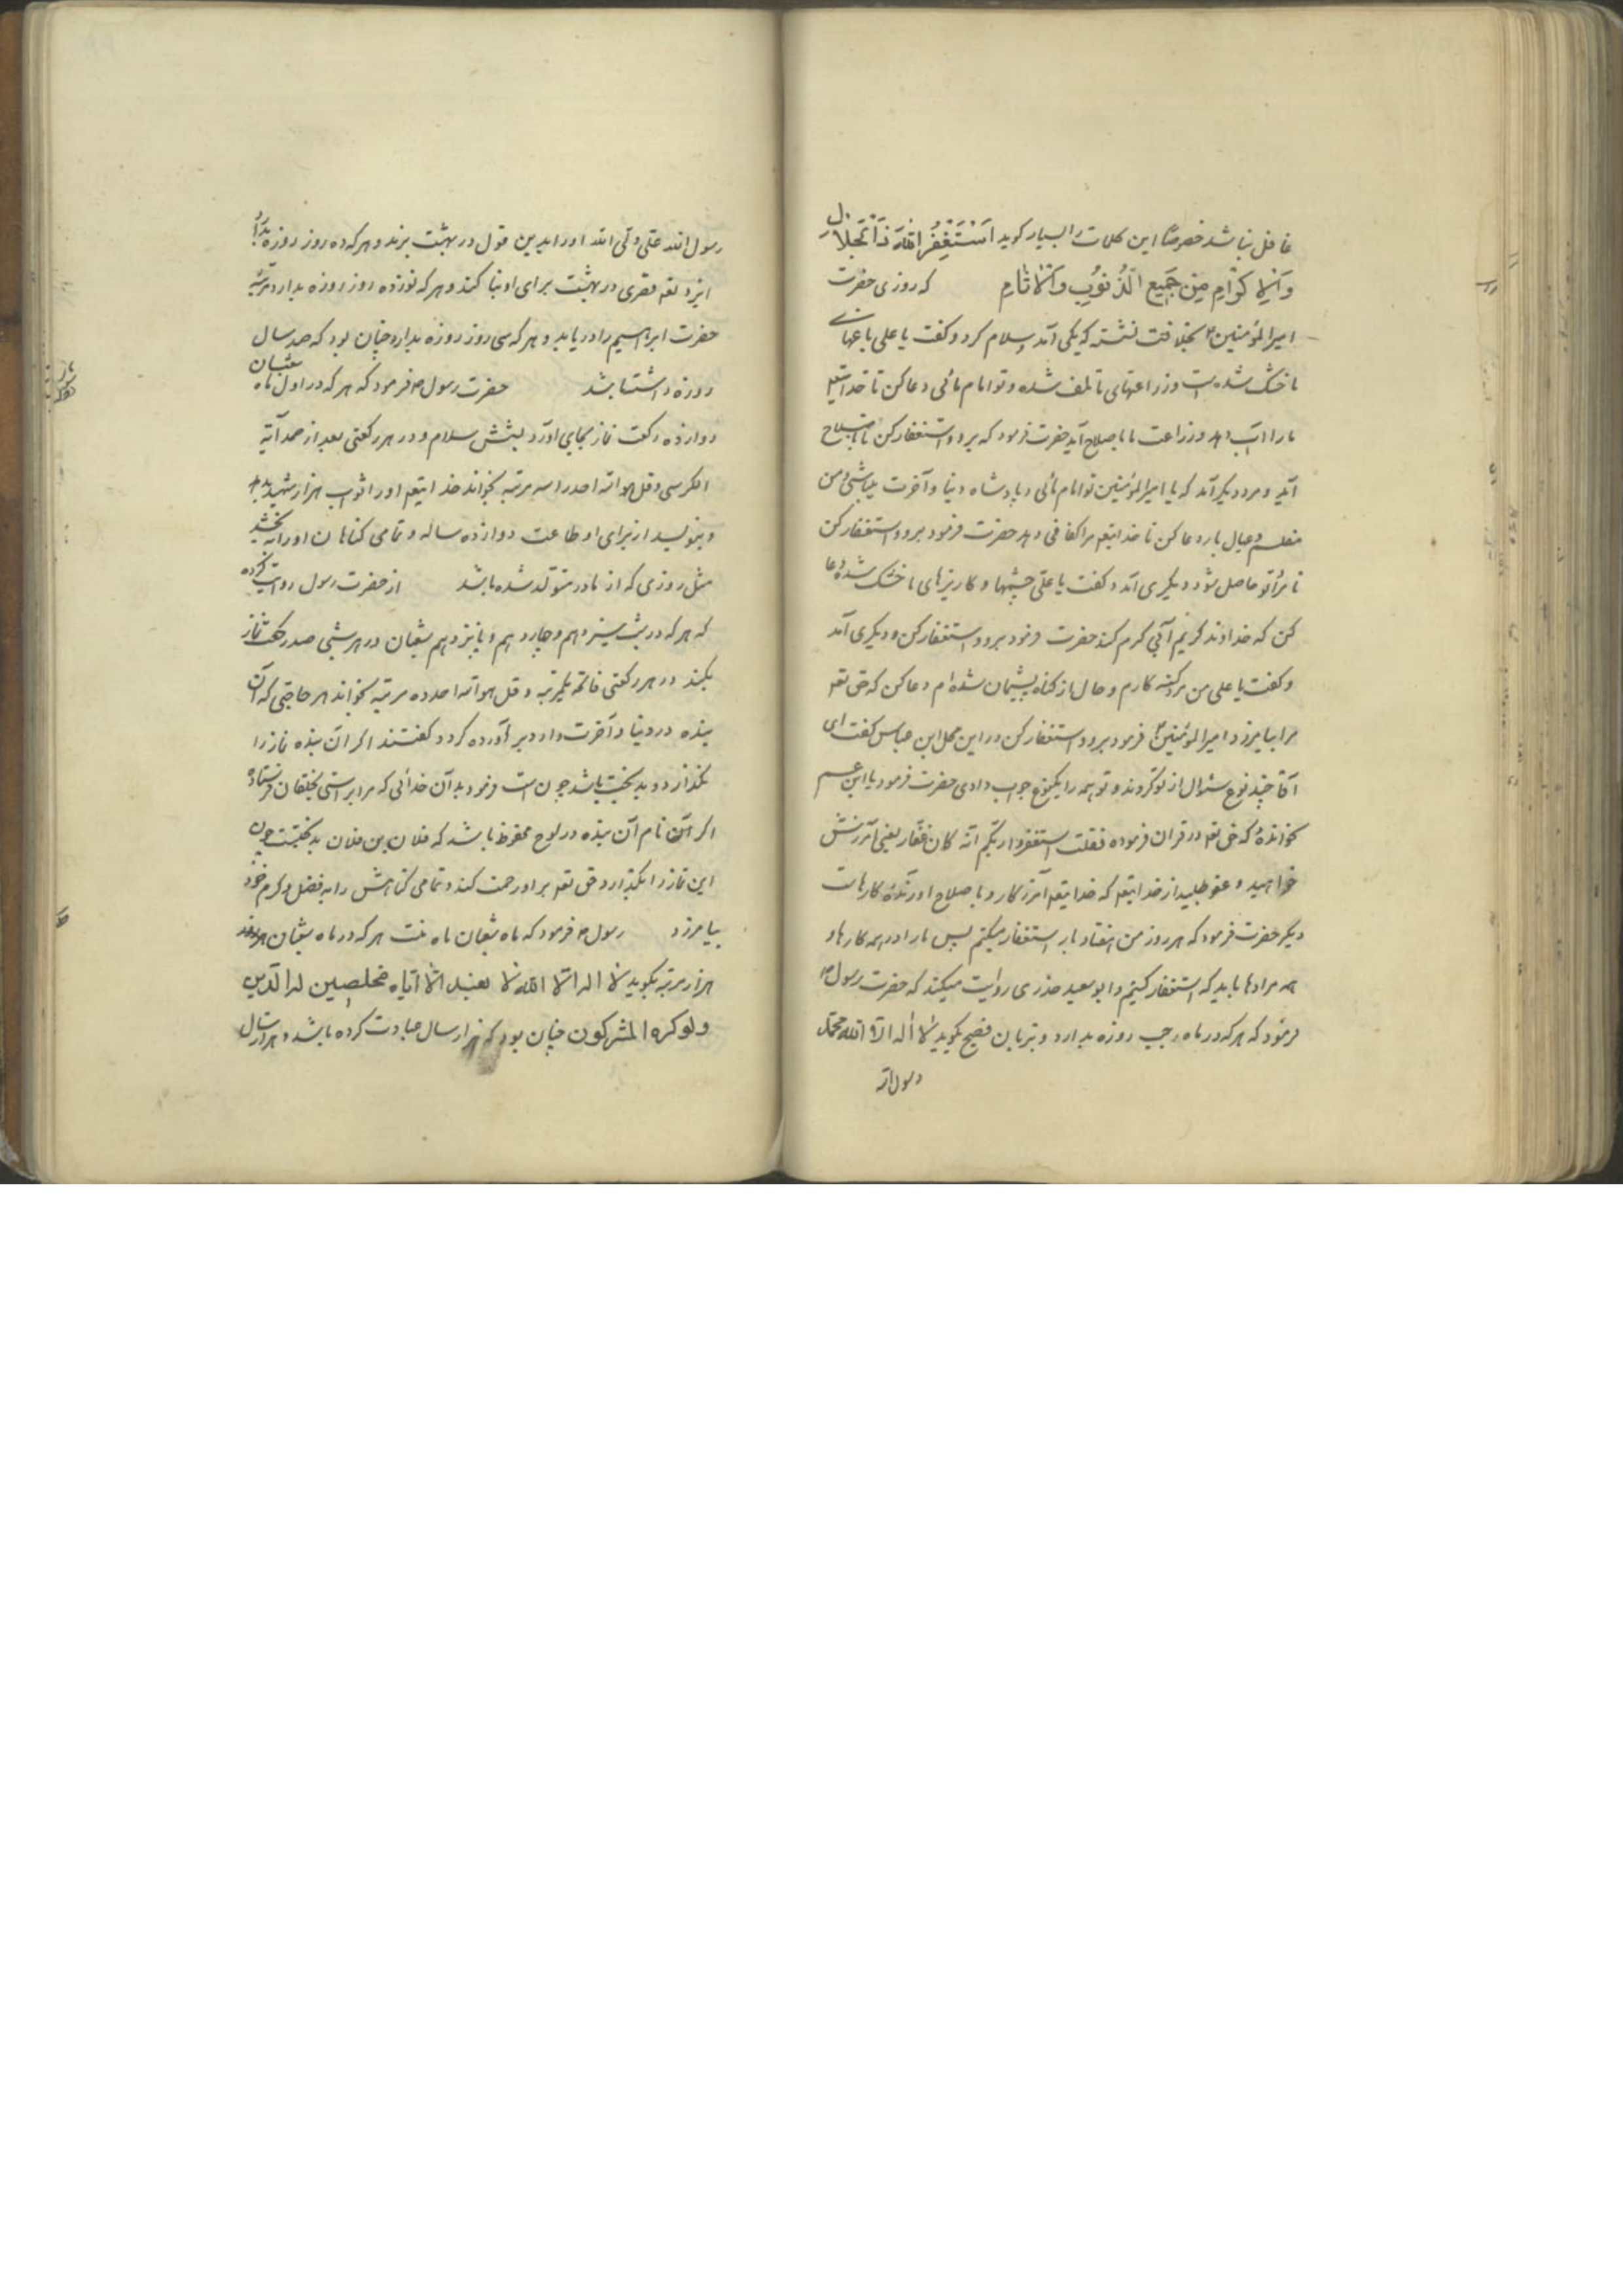 غافل نباشد خصوصاً این کلمات را بسیار گوید اَسْتَغْفِرُ اللهَ ذَا الْجَلَالِ
وَالْاِکْرَامِ مِنْ جَمِیعِ الذُّنُوبِ وَالْاٰثَامِ که روزی حضرت
امیرالمؤمنین ع بخلافت نشسته که یکی آمد و سلام کرد و گفت یا علی باغهای
ما خشک شده است و زراعتهای ما تلف شده و تو امام مائی دعا کن تا خدایتعه
ما را آب دهد و زراعت ما باصلاح آید حضرت فرمود که برو و استغفار کن تا باصلاح
آید و مرد دیگر آمد که یا امیرالمؤمنین تو امام مائی و پادشاه دنیا و آخرت میباشی و من
مفلسم و عیال بار دعا کن تا خدایتعه مرا کفافی دهد حضرت فرمود برو و استغفار کن
تا مراد تو حاصل شود دیگری آمد و گفت یا علی چشمها و کاریزهای ما خشک شده دعا
کن که خداوند کریم آبی کرم کند حضرت فرمود برو و استغفار کن و دیگری آمد
و گفت یا علی من مرد گنه کارم و حال از گناه پشیمان شده ام دعا کن که حق تعه
مرا بیامرزد امیرالمؤمنین ع فرمود برو و استغفار کن در این محل ابن عباس گفت ای
آقا چند نوع سئوال از تو کردند و تو همه را یکنوع جواب دادی حضرت فرمود یا ابن عم
نخوانده که حق تعه در قران فرموده فقلت استغفروا ربکم انه کان غفّار یعنی آمرزش
خواهید و عفو طلبید از خدایتعه که خدایتعه آمرزکار و باصلاح اورنده کارهاست
دیگر حضرت فرمود که هر روز من هفتاد بار استغفار میکنم پس ما را در همه کارها و
همه مرادها باید که استغفار کنیم و ابو سعید خذری روایت میکند که حضرت رسول ص
فرمود که هر که در ماه رجب روزه بدارد و بزبان فصیح بگوید لا اله الا الله محمّد
رسول الله
رسول الله علی ولی الله او را بدین قول در بهشت برند و هر که ده روز روزه بدارد
ایزد تعه قصری در بهشت برای او بنا کند و هر که نوزده روز روزه بدارد مرتبه
حضرت ابراهیم را دریابد و هر که سی روز روزه بدارد چنان بود که صد سال
روزه داشته باشد حضرت رسول ص فرمود که هر که در اول ماه شعبان
دوازده رکعت نماز بجای آورد بشش سلام و در هر رکعتی بعد از حمد آیة
الکرسی و قل هو الله احد را سه مرتبه بخواند خدایتعه او را ثواب هزار شهید بدهد
و بنویسد از برای او طاعت دوازده ساله و تمامی گناهان او را ببخشد
مثل روزی که از مادر متولّد شده باشد از حضرت رسول روایت کرده
که هر که در شب سیزدهم و چاردهم و پانزدهم شعبان در هر شبی صد رکعت نماز
بکند در هر رکعتی فاتحه یکمرتبه و قل هو الله احد ده مرتبه بخواند هر حاجتی که آن
بنده در دنیا و آخرت دارد برآورده گردد گفتند اگر آن بنده نماز را
بگذارد و بدبخت باشد چون است فرمود بدآن خدائی که مرا براستی بخلقان فرستاده
اگر آن نام آن بنده در لوح محفوظ باشد که فلان بن فلان بدبختست چون
این نماز را بگذارد حق تعه بر او رحمت کند و تمامی گناهش را به فضل و کرم خود
بیامرزد رسول ص فرمود که ماه شعبان ماه منست هر که در ماه شعبان
هزار مرتبه بگوید لا اله الا الله لا نعبد الا ایّاه مخلصین له الدّین
ولو کره المشرکون چنان بود که هزار سال عبادت کرده باشد و هزار سال